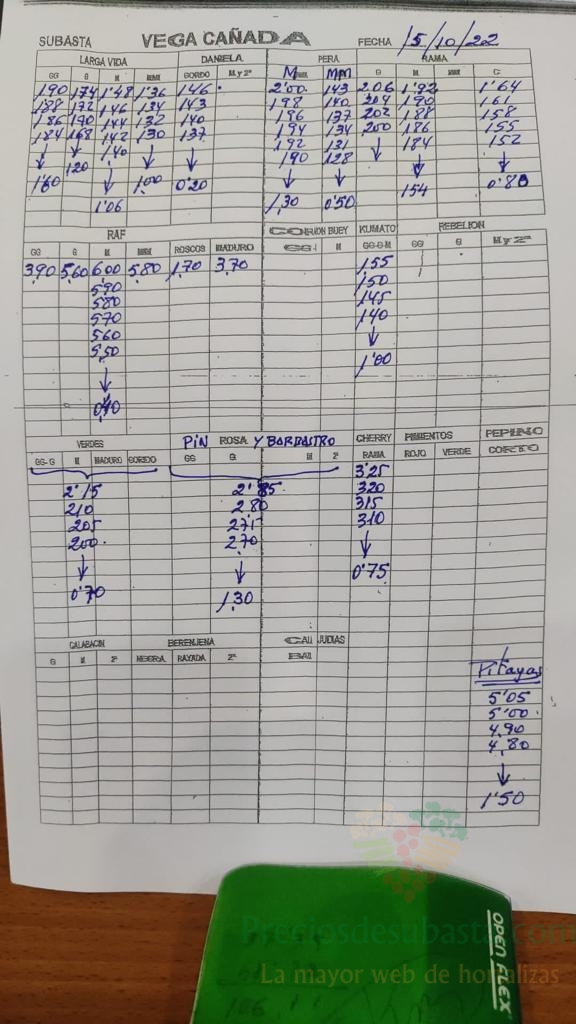 SUBASTA VEGA CAÑADA FECHA 15/10/22
LARGA VIDA DANIELA PERA RAMA
GG G M MMM GORDO M y 2ª M MM G M C
190 174 1'48 1'36 146 2'00 143 206 1'92 1'64
188 172 146 134 143 198 140 204 190 161
186 170 144 132 140 196 137 202 188 158
184 168 142 130 137 194 134 200 186 155
1,40 192 131 184 152
120 190 128
1'60 1'06 1,00 0'20 1,30 0'50 154 0'80
RAF CORAZON BUEY KUMATO REBELION
GG G M MMM ROSCOS MADURO GG M GG-G-M GG G M y 2ª
3,90 5,60 6,00 5,80 1,70 3,70 1,55
5,90 1,50
580 145
570 140
560
5,50 1'00
0,40
VERDES PIN ROSA Y BARBASTRO CHERRY PIMIENTOS PEPINO
GG-G M MADURO GORDO GG G M 2ª RAMA ROJO VERDE CORTO
2'15 2'85 3'25
210 2,80 320
205 275 315
200 2,70 310
0'70 1,30 0'75
CALABACIN BERENJENA JUDIAS
G M 2ª NEGRA RAYADA 2ª
Pitayas
5'05
5'00
4,90
4,80
1'50
Preciosdesubasta.com
La mayor web de hortalizas
OPEN FLEX